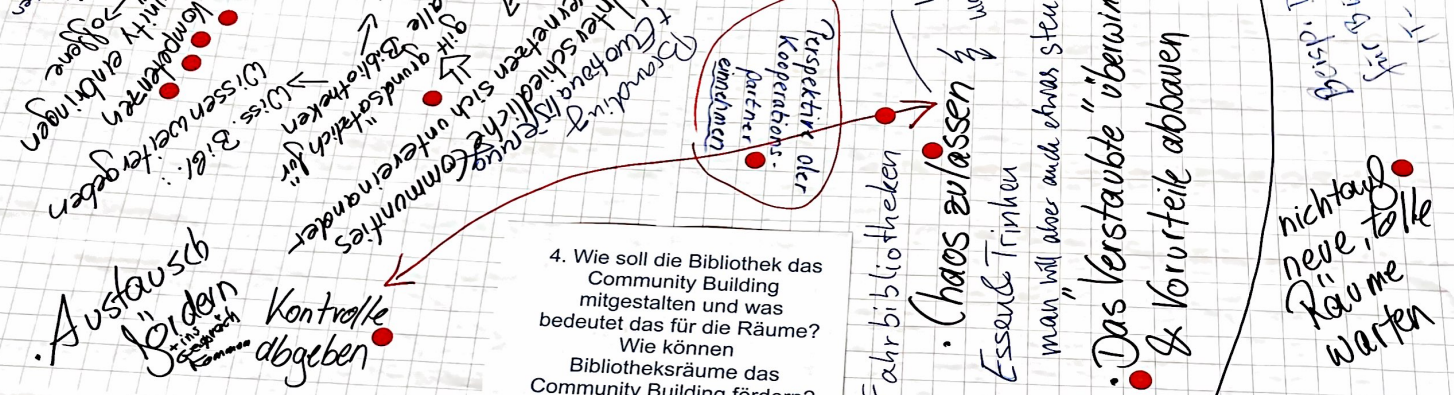 Kompetenzen
einbringen
offene
Wissen weitergeben
← Wiss. Bibl.:
alle Bibliotheken
gilt grundsätzlich für
vernetzen sich untereinander
unterschiedliche Communities
+ Eventualisierung
Branding
Perspektive der
Kooperations-
partner
einnehmen
. Austausch
fördern
+ ins
Gespräch
kommen
Kontrolle
abgeben
4. Wie soll die Bibliothek das
Community Building
mitgestalten und was
bedeutet das für die Räume?
Wie können
Bibliotheksräume das
Community Building fördern?
Fahrbibliotheken
• Chaos zulassen
Essen & Trinken
man will aber auch etwas
• Das "Verstaubte"
& Vorurteile abbauen
Beisp.
für
nicht auf
neue, tolle
Räume
warten